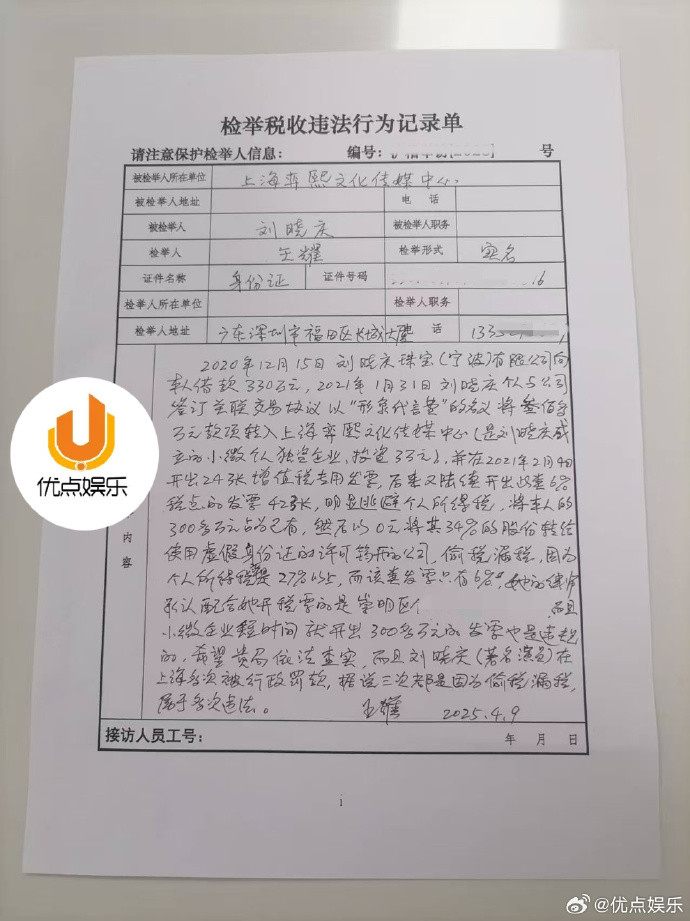 检举税收违法行为记录单
请注意保护检举人信息： 编号： 号
被检举人所在单位 上海弈熙文化传媒中心
被检举人地址 电话
被检举人 刘晓庆 被检举人职务
检举人 王耀 检举形式 实名
证件名称 身份证 证件号码 16
检举人所在单位 检举人职务
检举人地址 广东深圳市福田区长城大 话 133
2020年12月15日刘晓庆珠宝（宁波）有限公司向
本人借款330万元，2021年1月31日刘晓庆个人与公司
签订关联交易协议以“形象代言费”的名义将叁佰多
万元款项转入上海弈熙文化传媒中心（是刘晓庆成
立的小微个人独资企业，投资3万元），并在2021年2月4日
开出24张增值税专用发票，后来又陆续开出此类6%
税点的发票42张，明显逃避个人所得税，将本人的
300多万元占为己有，然后以0元将其34%的股份转给
使用虚假身份证的许可 的公司，偷税漏税，因为
个人所得税是27%以上，而该类发票只有6%，她的律师
承认配合她开税票的是崇明区 而且
小微企业短时间就开出300多万元的发票也是违规
的，希望贵局依法查实，而且刘晓庆（著名演员）在
上海多次被行政罚款，据说三次都是因为偷税漏税，
属于多次违法。 王耀 2025.4.9
内容
接访人员工号： 年 月 日
i
优点娱乐
@优点娱乐